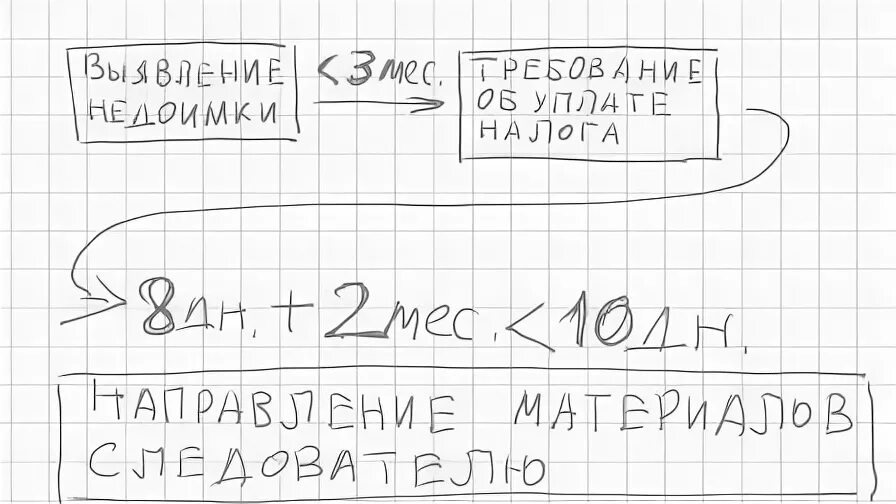 ВЫЯВЛЕНИЕ
НЕДОИМКИ
<3 мес.
ТРЕБОВАНИЕ
ОБ УПЛАТЕ
НАЛОГА
8дн. + 2мес. <10дн.
НАПРАВЛЕНИЕ МАТЕРИАЛОВ
СЛЕДОВАТЕЛЮ